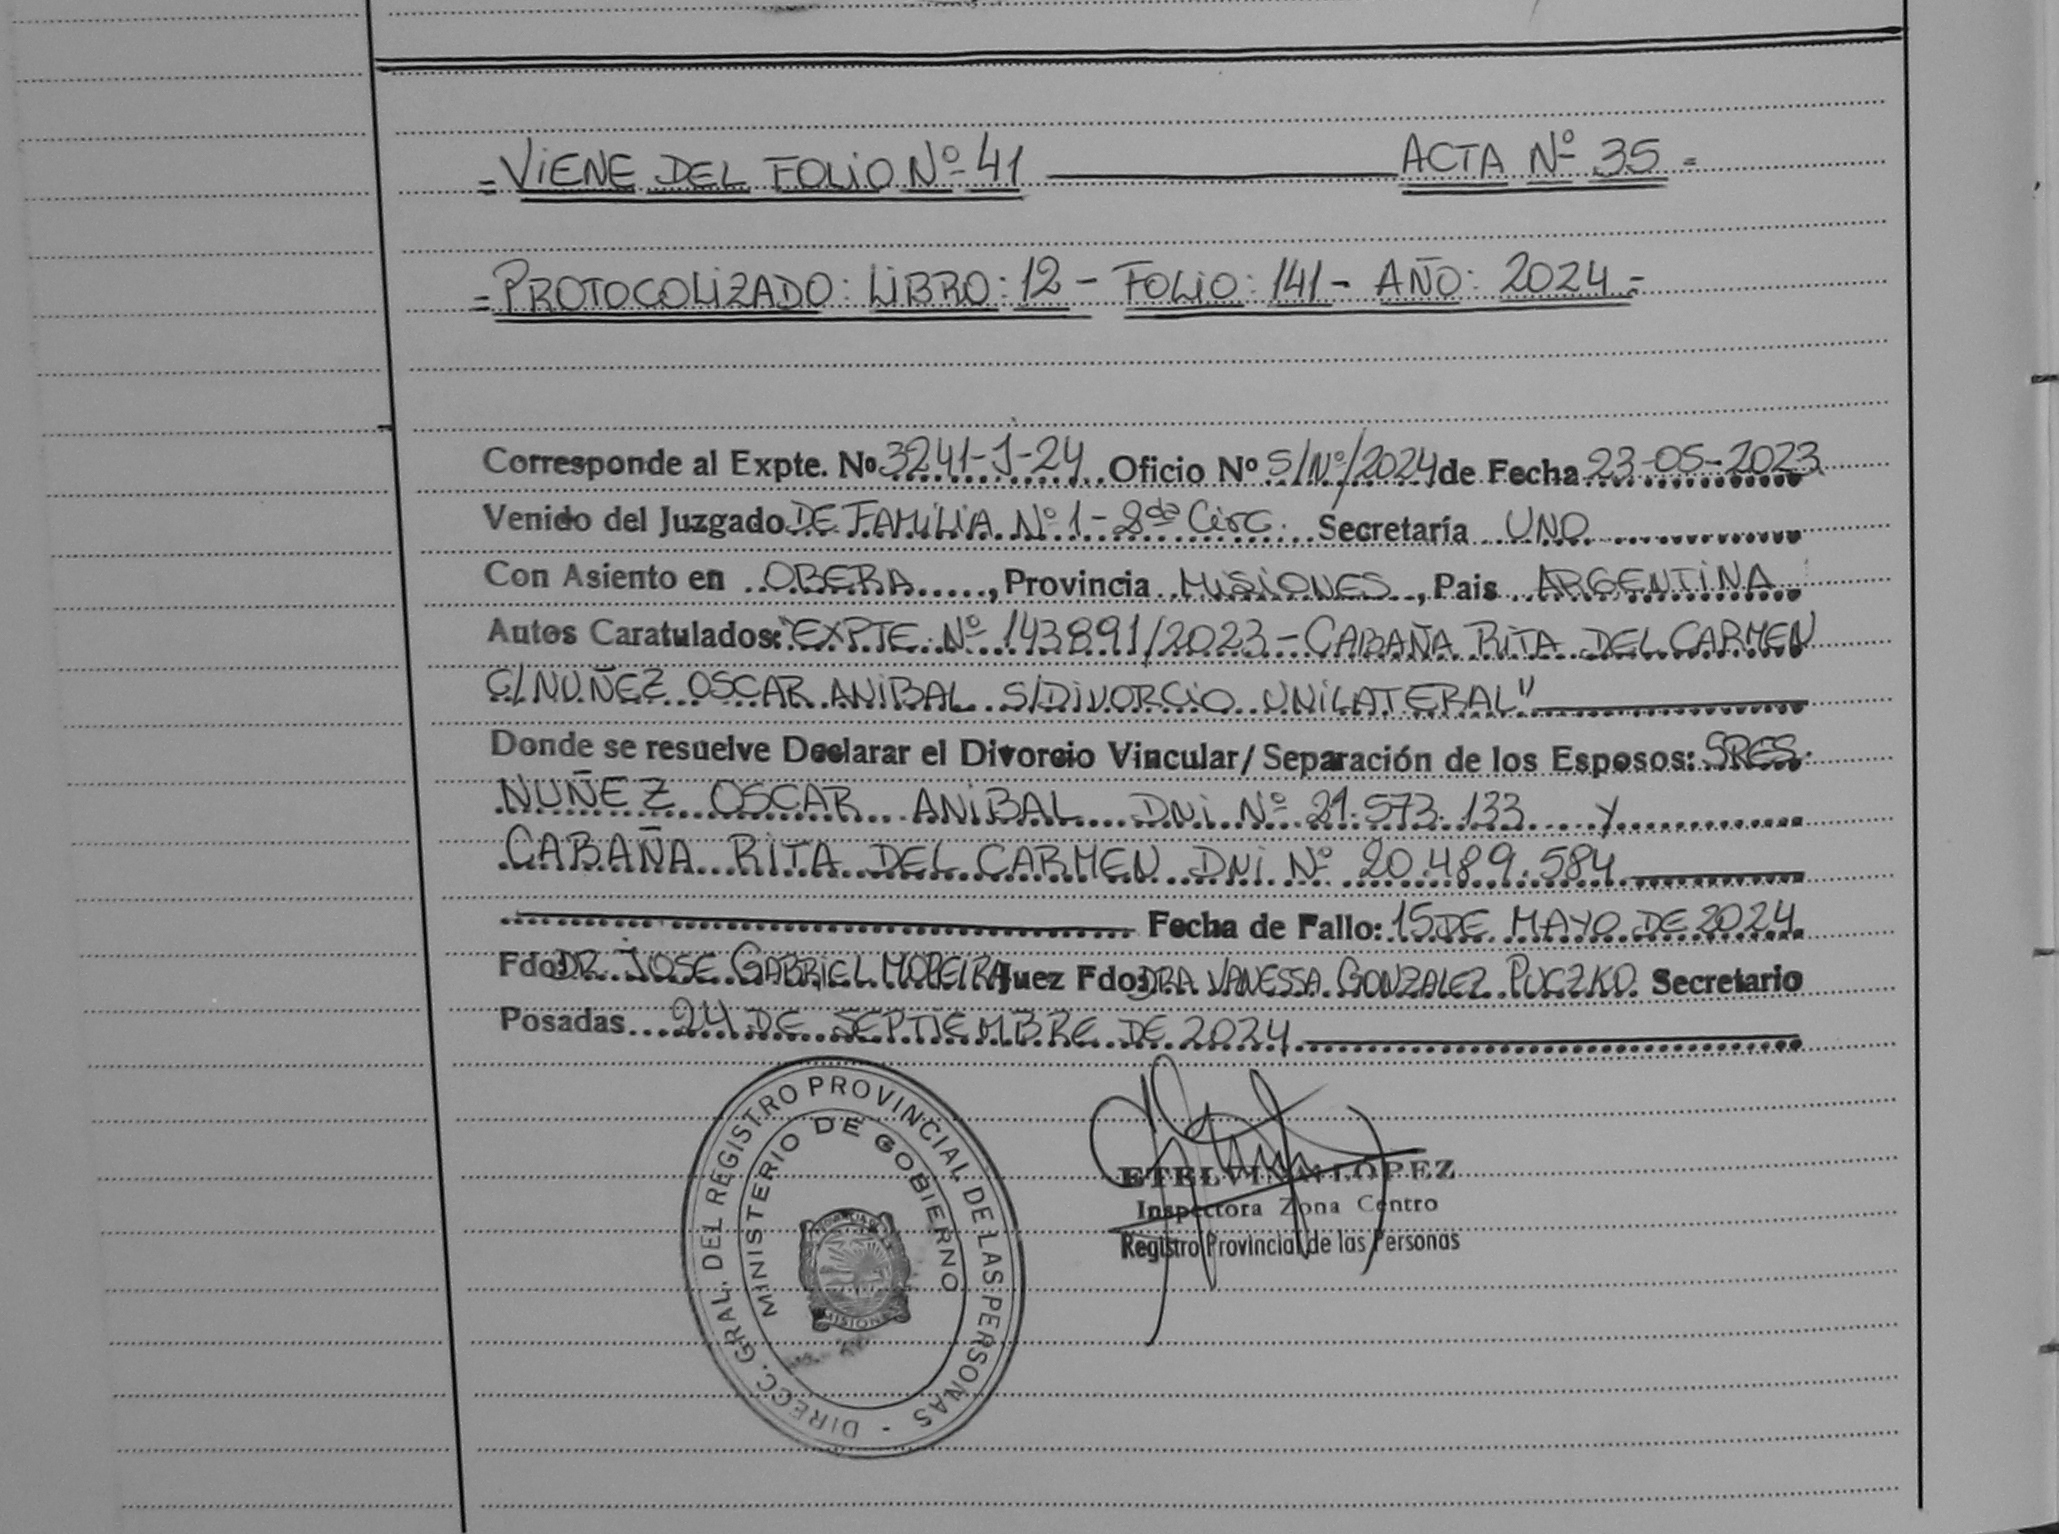 =VIENE DEL FOLIO Nº 41 ACTA Nº 35=
=PROTOCOLIZADO: LIBRO: 12 - FOLIO: 141 - AÑO: 2024=
Corresponde al Expte. Nº 3241-J-24 Oficio Nº S/Nº/2024 de Fecha 23-05-2023
Venido del Juzgado DE FAMILIA Nº 1 - 2da Circ. Secretaría UNO
Con Asiento en OBERA, Provincia MISIONES, Pais ARGENTINA
Autos Caratulados: "EXPTE. Nº 143891/2023 - CABAÑA RITA DEL CARMEN
C/ NUÑEZ OSCAR ANIBAL S/DIVORCIO UNILATERAL"
Donde se resuelve Declarar el Divorcio Vincular/ Separación de los Esposos: SRES.
NUÑEZ OSCAR ANIBAL DNI Nº 21.573.133 y
CABAÑA RITA DEL CARMEN DNI Nº 20.489.584
Fecha de Fallo: 15 DE MAYO DE 2024
Fdo: DR. JOSE GABRIEL MOREIRA Juez Fdo: DRA VANESSA GONZALEZ PUCZKO Secretario
Posadas 24 DE SEPTIEMBRE DE 2024
DIRECC. GRAL. DEL REGISTRO PROVINCIAL DE LAS PERSONAS -
MINISTERIO DE GOBIERNO
PROVINCIA DE
MISIONES
ETELVINA LOPEZ
Inspectora Zona Centro
Registro Provincial de las Personas